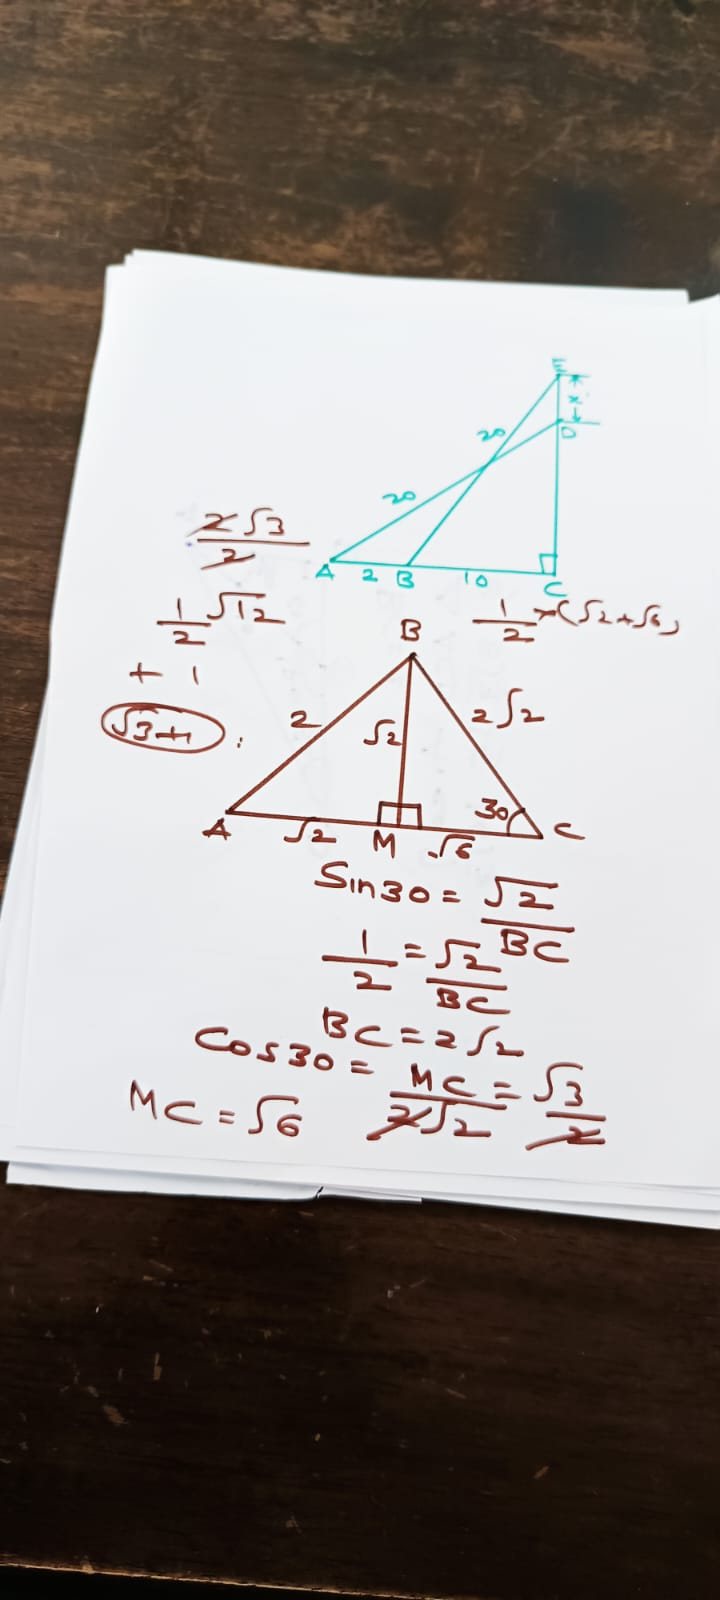 E
x
D
20
20
A 2 B 10 C
2√3
2
1/2 √12
+ 1
√3+1
1/2 × (√2+√6)
B
2
√2
2√2
30
A √2 M √6 C
Sin30 = √2/BC
1/2 = √2/BC
BC = 2√2
Cos30 = MC/2√2 = √3/2
MC = √6